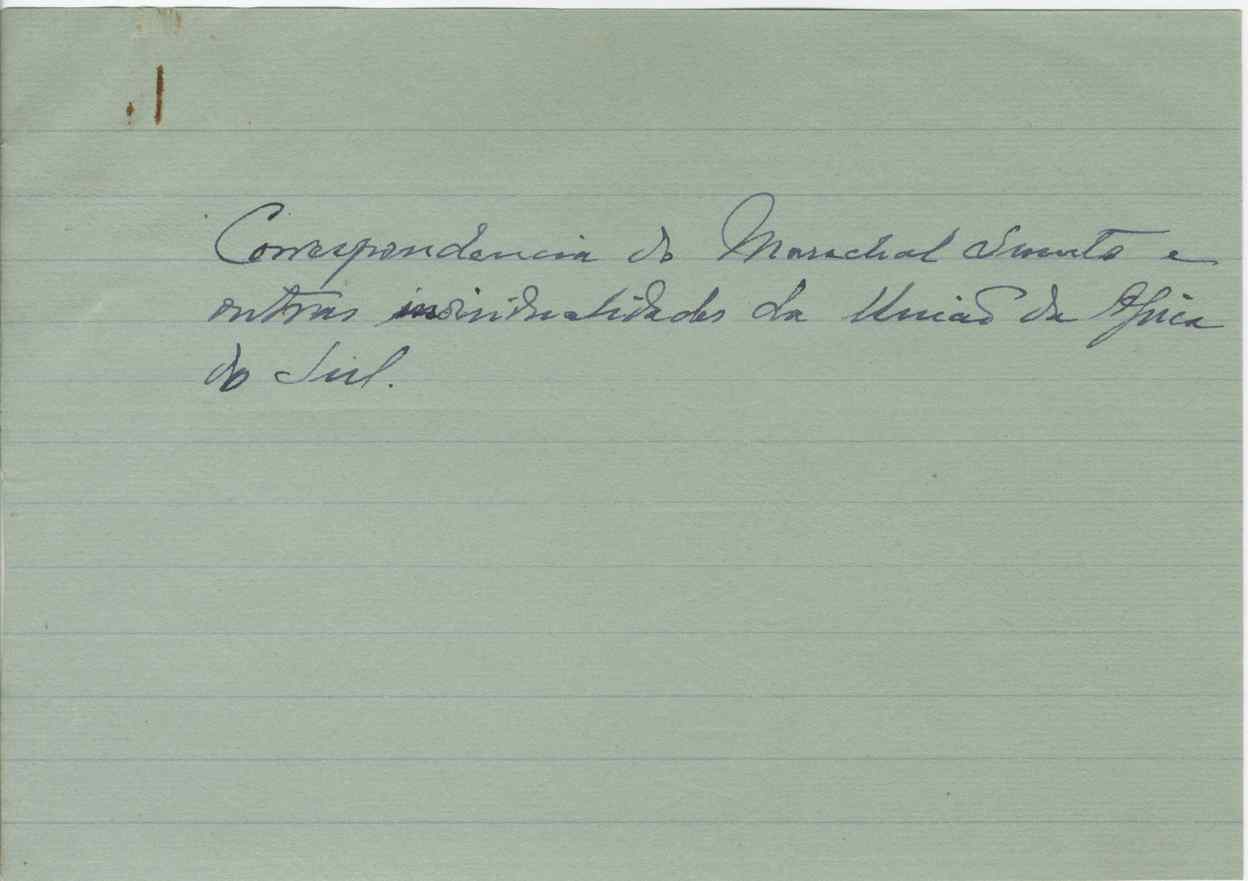 Correspondencia do Marechal Smuts e
outras individualidades da União da Africa
do Sul.